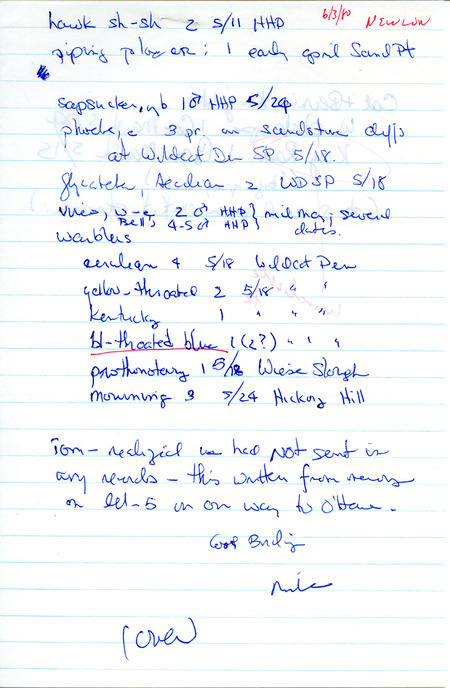 6/3/80 NEWLON
hawk sh-sh 2 5/11 HHP
piping plover: 1 early april Sand Pt
sapsucker, yb 1♂ HHP 5/24
phoebe, e 3 pr. on sandstone cliffs
at Wildcat Den SP 5/18.
flycatcher, Acadian 2 WDSP 5/18
vireo, w-e 2♂ HHP } mid May; several
Bell's 4-5♂ HHP } dates.
warblers
cerulean 4 5/18 Wildcat Den
yellow-throated 2 5/18 " "
Kentucky 1 " " "
bl-throated blue 1 (2?) " " "
prothonotary 1 5/18 Wiese Slough
mourning 3 5/24 Hickory Hill
Tom - realized we had not sent in
any records - this written from memory
on on our way to Ottawa.
Good Birding
Mike
(over)